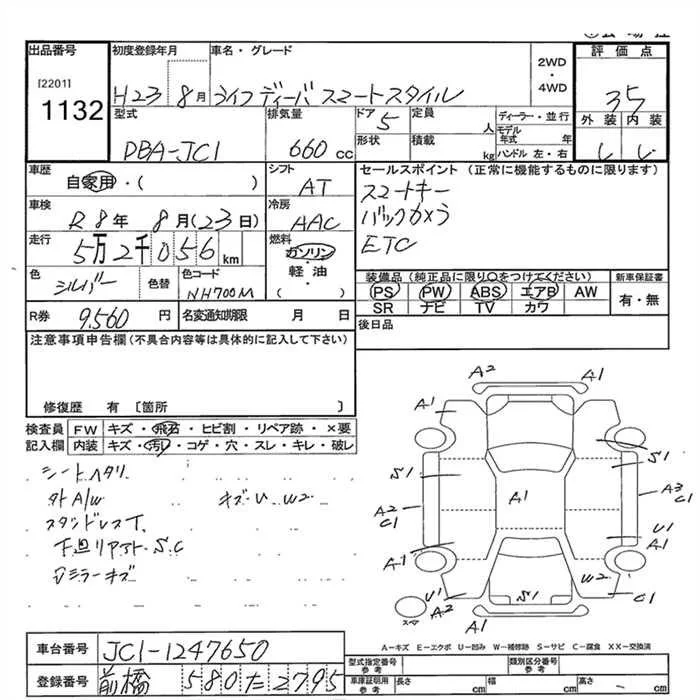 出品番号 初度登録年月 車名・グレード 2WD・4WD 評価点
[2201]
1132
H23 8月 ライフ ディーバ スマートスタイル 35
型式 排気量 ドア 5 定員 人 ディーラー・並行 外装 内装
DBA-JC1 660cc 形状 積載 kg モデル年式 年 ハンドル 左・右
車歴 シフト セールスポイント (正常に機能するものに限ります)
自家用・( ) AT スマートキー
車検 冷房 バックカメラ
R8年 8月(23日) AAC ETC
走行 燃料
5万2千056km ガソリン・軽油・( )
装備品(純正品に限り○をつけてください) 新車保証書
色 シルバー 色替 色コード NH700M
PS PW ABS エアB AW 有・無
SR ナビ TV カワ
R券 9,560円 名変通知期限 月 日
後日品
注意事項申告欄(不具合内容等は具体的に記入して下さい)
修復歴 有 〔箇所 〕
検査員 FW キズ・飛石・ヒビ割・リペア跡・×要
記入欄 内装 キズ・汚れ・コゲ・穴・スレ・キレ・破レ
シートヘタリ
外A/W キズ・U W2
下廻リ S.C
ミラーキズ
A2 A1
A1
S1 S1
A1
A2 C1 A3 C1
A1 U1 A1
W2
U1 A2 S1 C1
スペア
A1
A-キズ E-エクボ U-凹み W-補修跡 S-サビ C-腐食 XX-交換済
車台番号 JC1-1247650
型式指定番号 参考 類別区分番号 参考
登録番号 前橋 580た2795
車庫証明用 参考 長さ cm 幅 cm 高さ cm